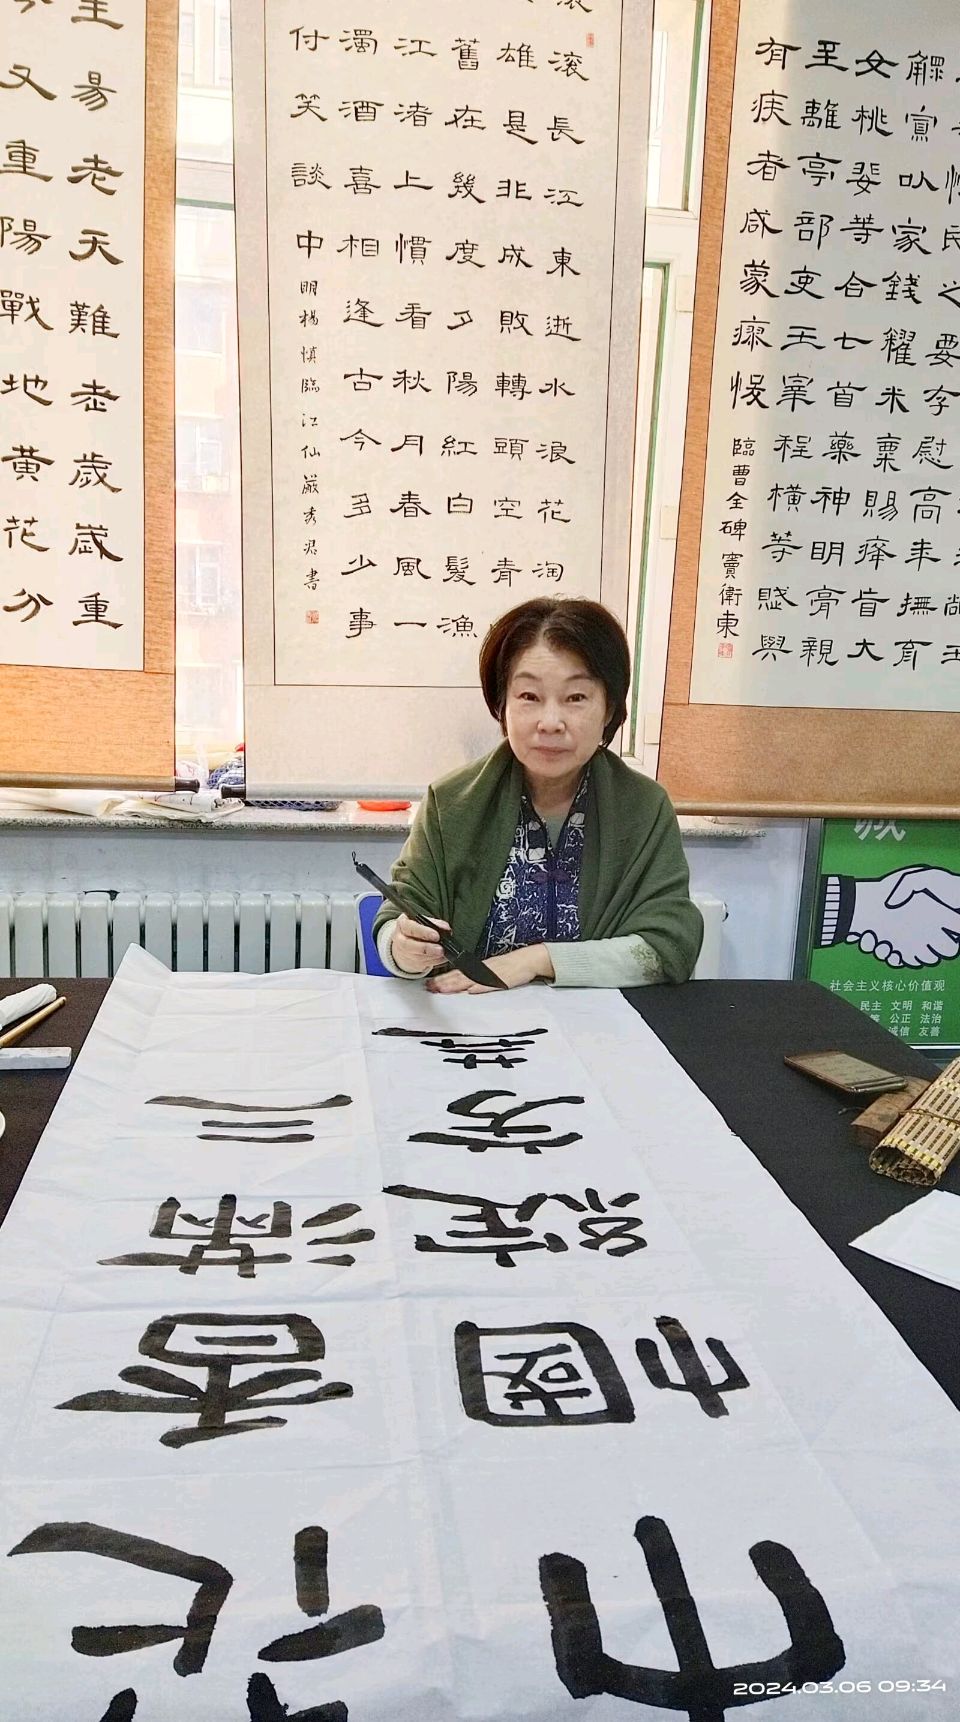 生易老天難老歲歲重
今又重陽戰地黃花分
滾長江東逝水浪花淘
雄是非成敗轉頭空青
舊在幾度夕陽紅白髮漁
江渚上慣看秋月春風一
濁酒喜相逢古今多少事
付笑談中
明楊慎臨江仙嚴秀君書
鰥寡以家錢糴米粟賜癃盲大
女桃婓等合七首藥神明膏親
至離亭部吏王宰程橫等賦與
有疾者咸蒙瘳悛
臨曹全碑竇衛東
社会主义核心价值观
民主 文明 和谐
等 公正 法治
诚信 友善
巾幗綻芳
花香滿三
2024.03.06 09:34